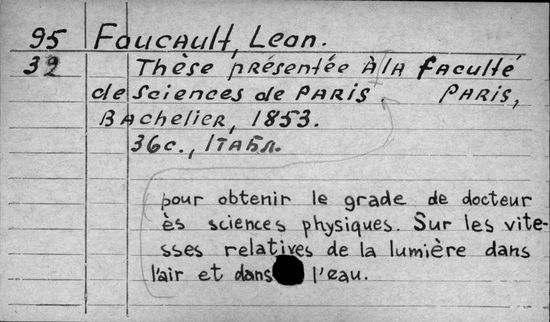 95 Foucault, Leon.
39 Thèse présentée à la faculté
de sciences de Paris. Paris,
Bachelier, 1853.
36с., 1табл.
pour obtenir le grade de docteur
ès sciences physiques. Sur les vite-
sses relatives de la lumière dans
l'air et dans l'eau.